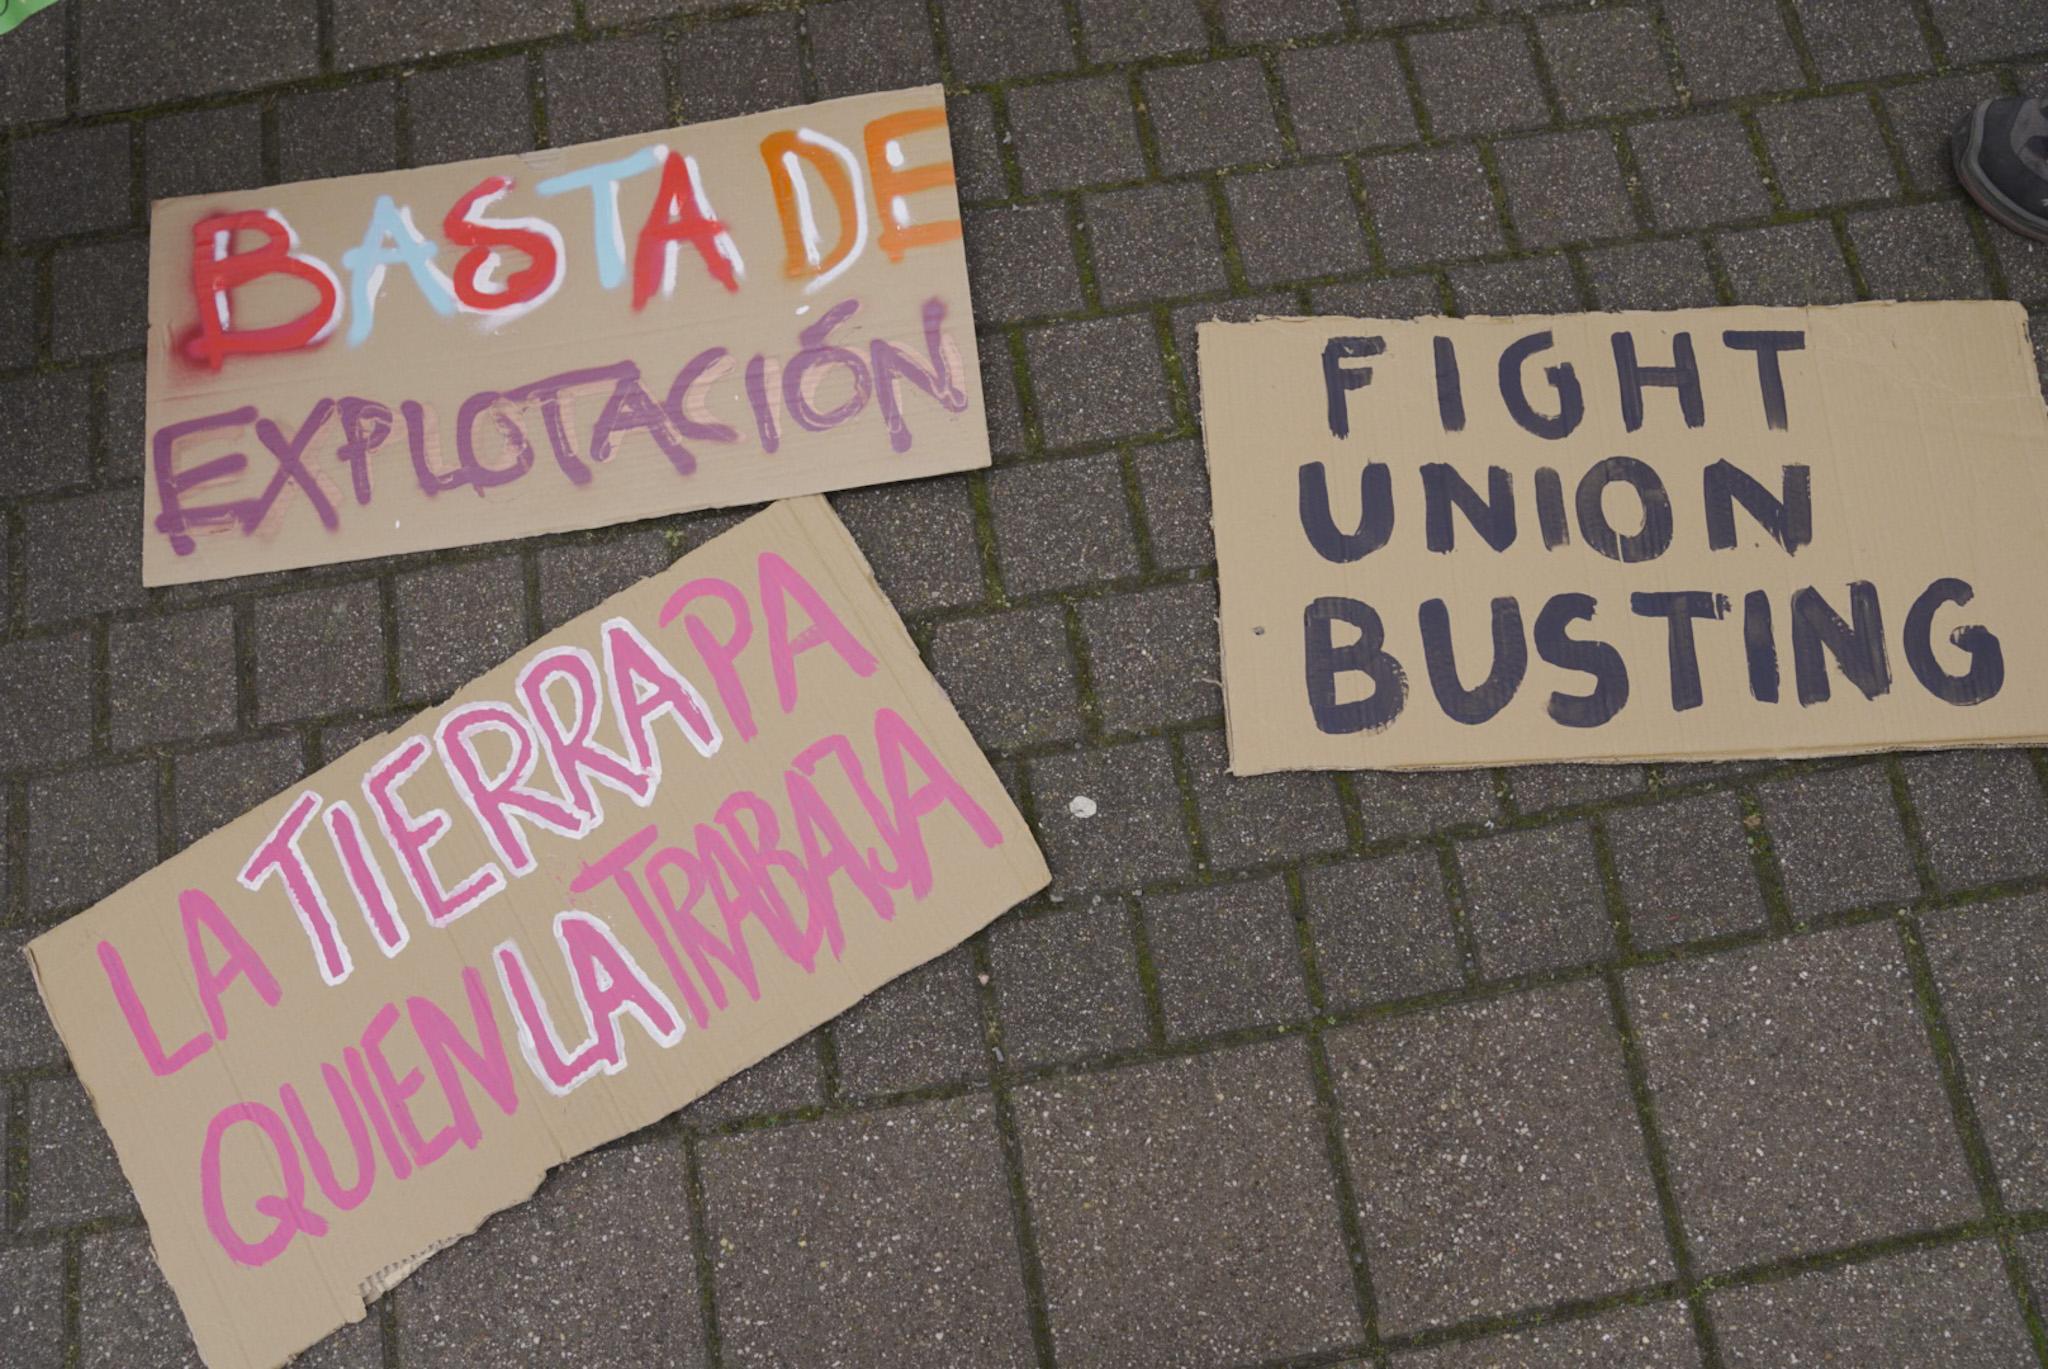 BASTA DE
EXPLOTACIÓN
LA TIERRA PA
QUIEN LA TRABAJA
FIGHT
UNION
BUSTING